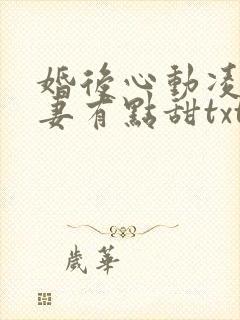 婚後心動凌
妻有點甜txt
歲華